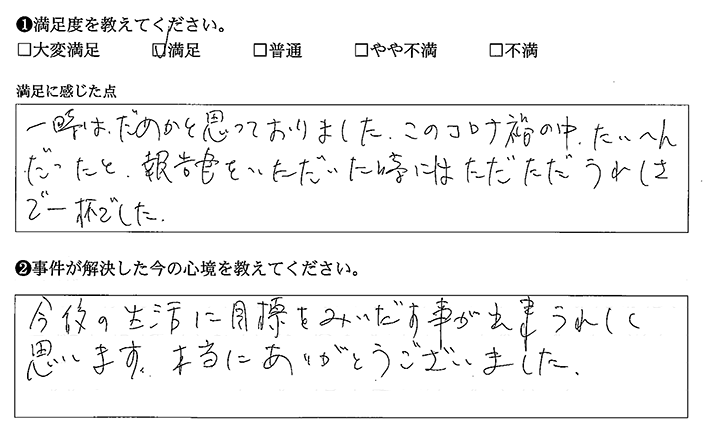 ❶満足度を教えてください。
□大変満足 ☑満足 □普通 □やや不満 □不満
満足に感じた点
一時は、だめかと思っておりました。このコロナ禍の中、たいへん
だったと、報告書をいただいた時にはただただうれしさ
で一杯でした。
❷事件が解決した今の心境を教えてください。
今後の生活に目標をみいだす事が出来うれしく
思います。本当にありがとうございました。